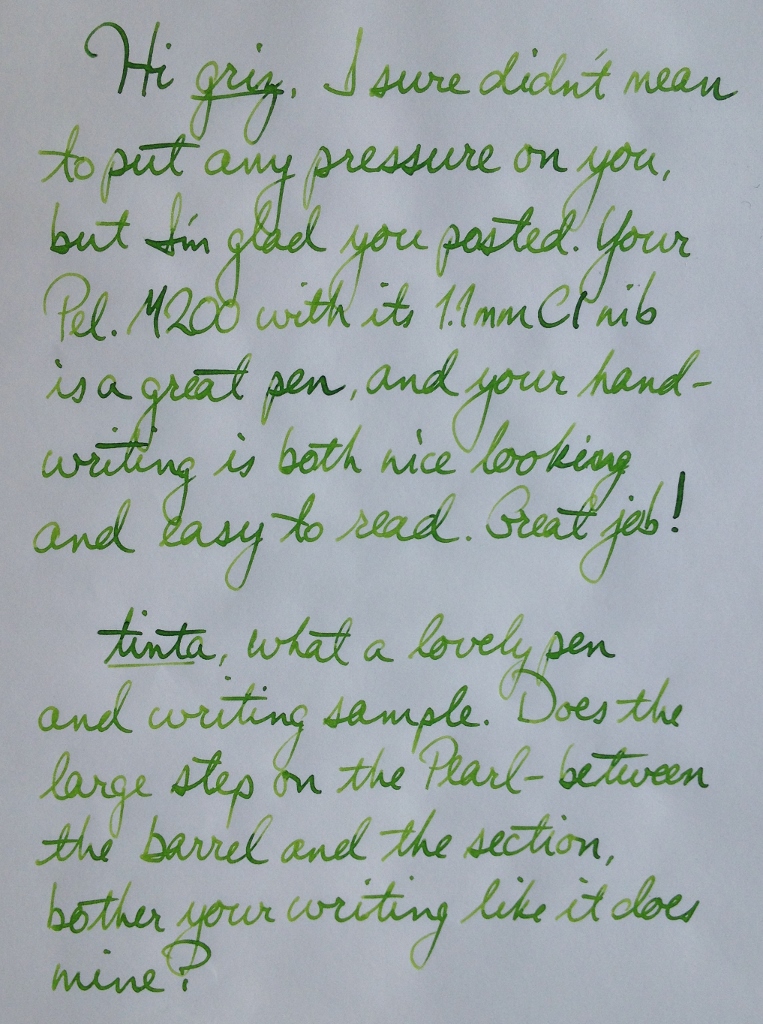 Hi griz, I sure didn't mean
to put any pressure on you,
but I'm glad you posted. Your
Pel. M200 with its 1.1mm CI nib
is a great pen, and your hand-
writing is both nice looking
and easy to read. Great job!
tinta, what a lovely pen
and writing sample. Does the
large step on the Pearl - between
the barrel and the section,
bother your writing like it does
mine?